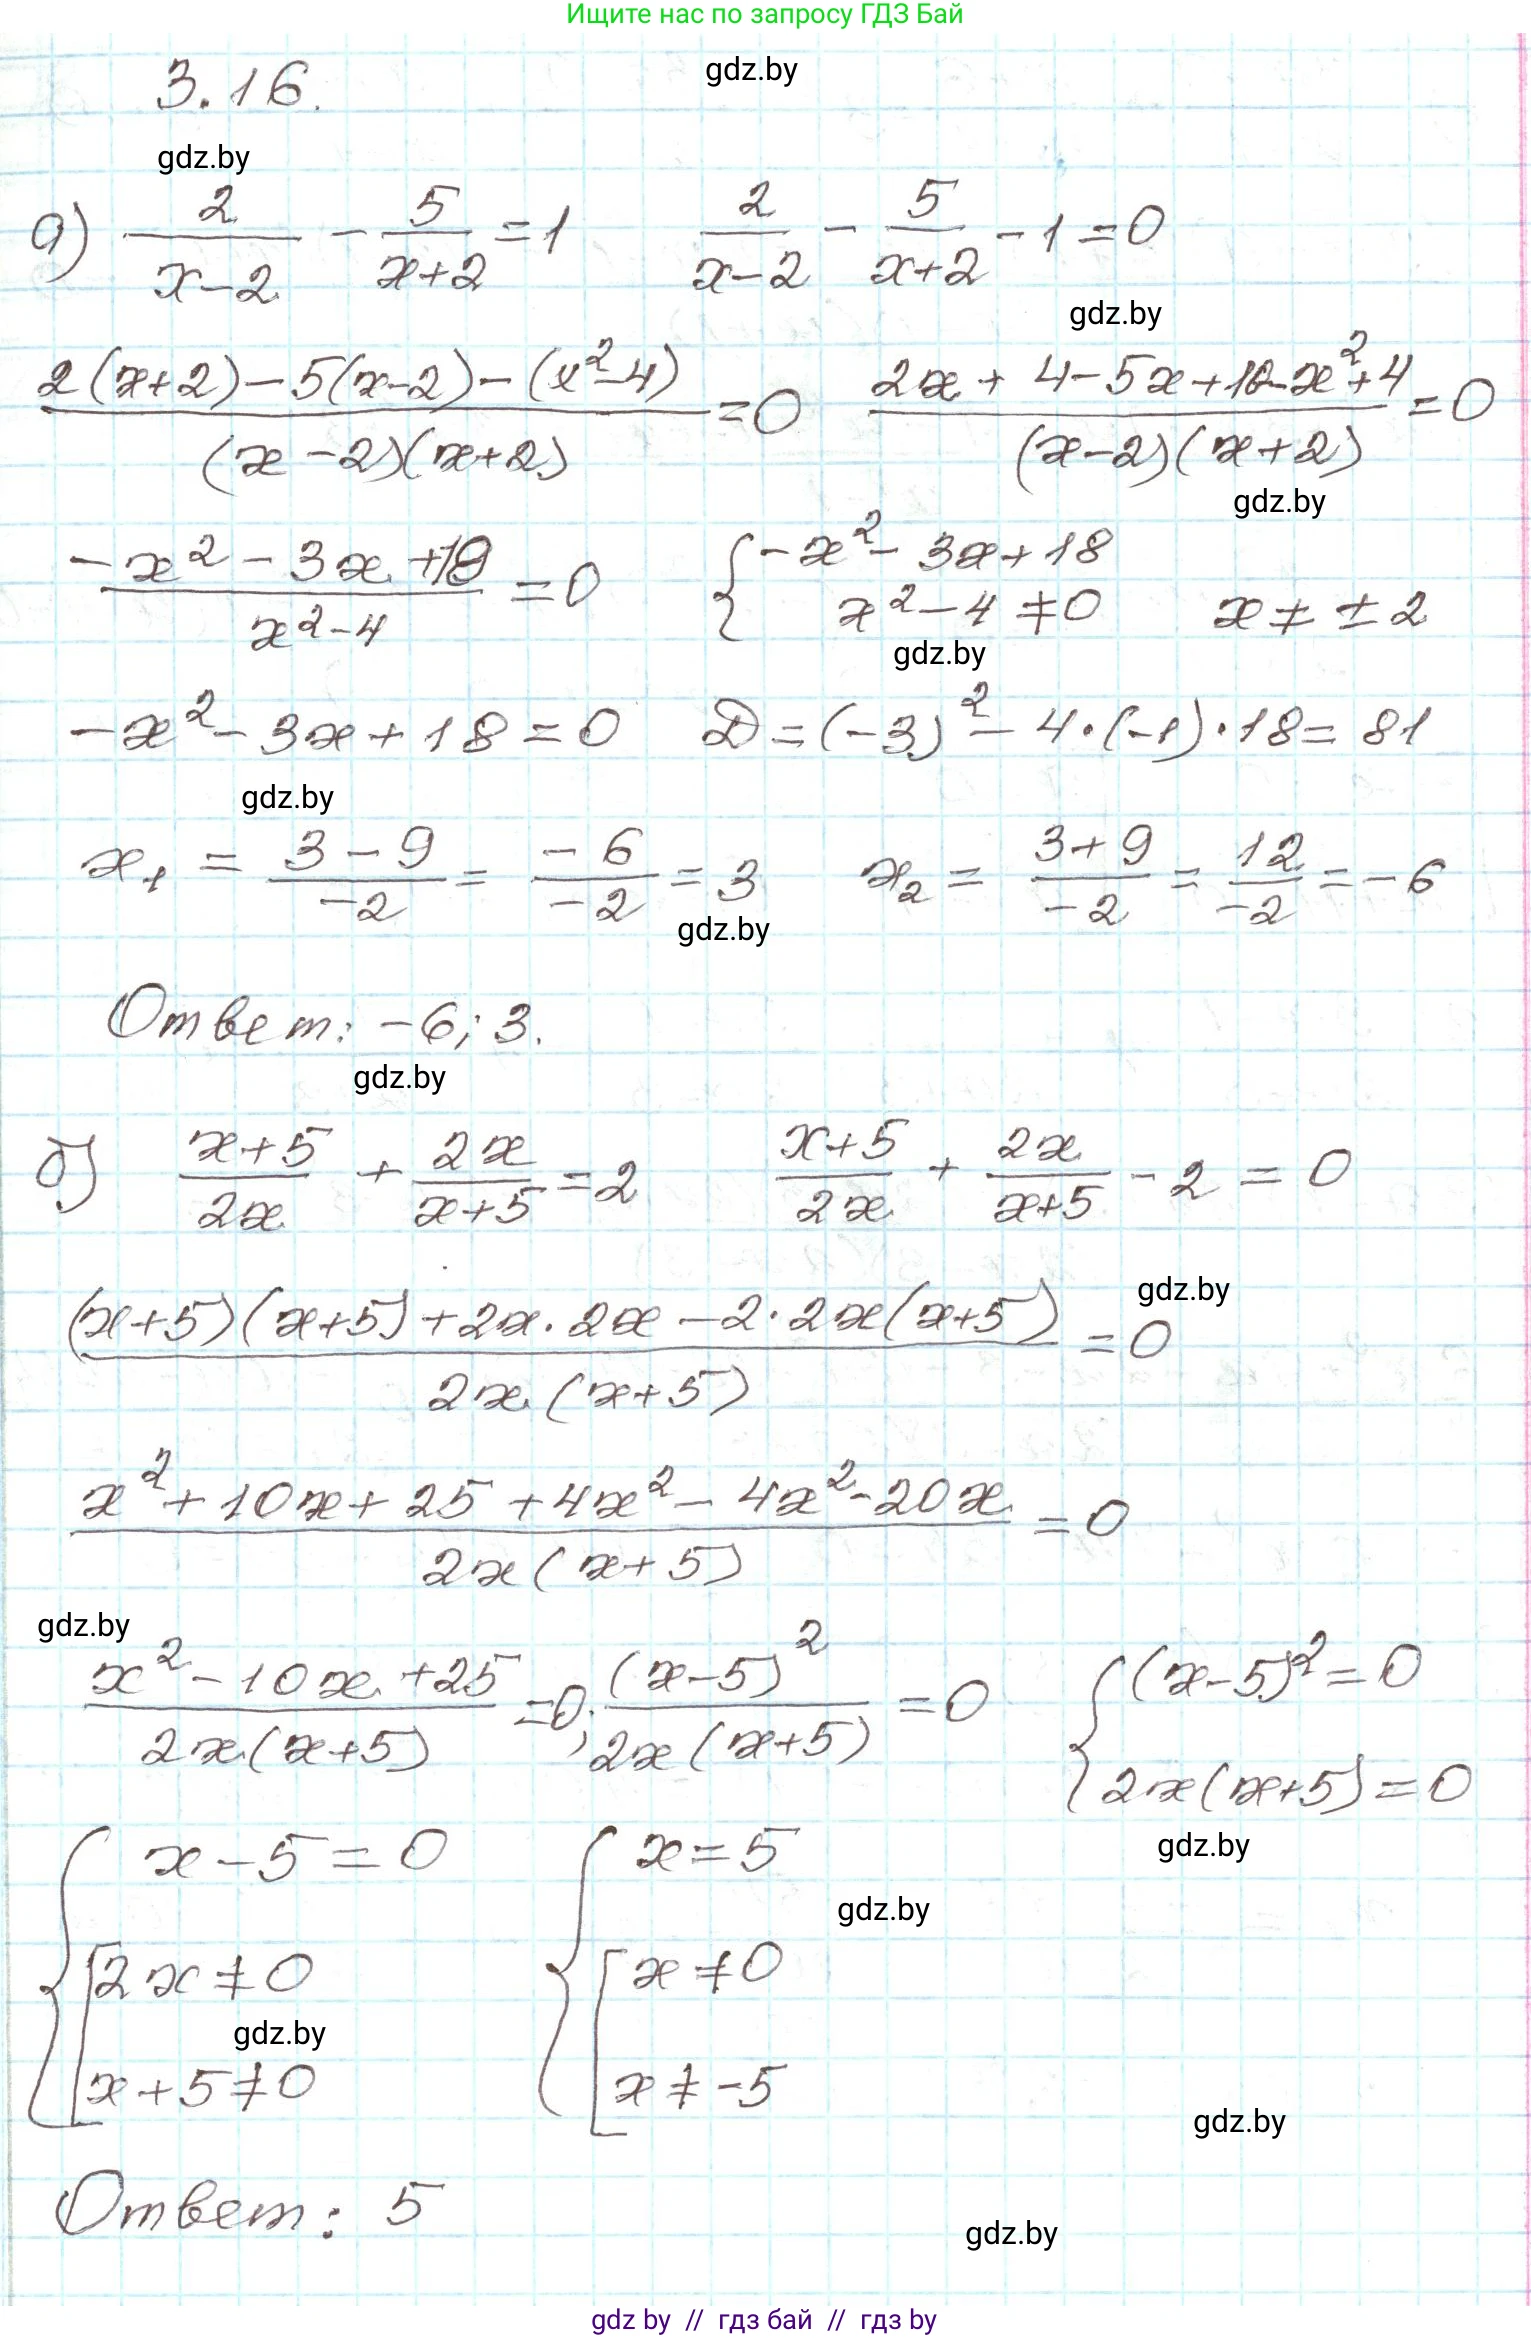 Ищите нас по запросу ГДЗ Бай
3.16.
gdz.by
gdz.by
а) 2/(x-2) - 5/(x+2) = 1    2/(x-2) - 5/(x+2) - 1 = 0
gdz.by
(2(x+2) - 5(x-2) - (x²-4))/((x-2)(x+2)) = 0    (2x + 4 - 5x + 10 - x² + 4)/((x-2)(x+2)) = 0
gdz.by
(-x² - 3x + 18)/(x²-4) = 0    { -x² - 3x + 18
x² - 4 ≠ 0    x ≠ ± 2
gdz.by
-x² - 3x + 18 = 0    D = (-3)² - 4·(-1)·18 = 81
gdz.by
x₁ = (3-9)/(-2) = (-6)/(-2) = 3    x₂ = (3+9)/(-2) = 12/(-2) = -6
gdz.by
Ответ: -6; 3.
gdz.by
б) (x+5)/(2x) + (2x)/(x+5) = 2    (x+5)/(2x) + (2x)/(x+5) - 2 = 0
gdz.by
((x+5)(x+5) + 2x·2x - 2·2x(x+5))/(2x(x+5)) = 0
(x² + 10x + 25 + 4x² - 4x² - 20x)/(2x(x+5)) = 0
gdz.by
(x² - 10x + 25)/(2x(x+5)) = 0; (x-5)²/(2x(x+5)) = 0    { (x-5)² = 0
2x(x+5) = 0
gdz.by
{ x - 5 = 0    { x = 5
gdz.by
[ 2x ≠ 0    [ x ≠ 0
gdz.by
x + 5 ≠ 0    x ≠ -5
gdz.by
Ответ: 5
gdz.by
gdz by // гдз бай // гдз by